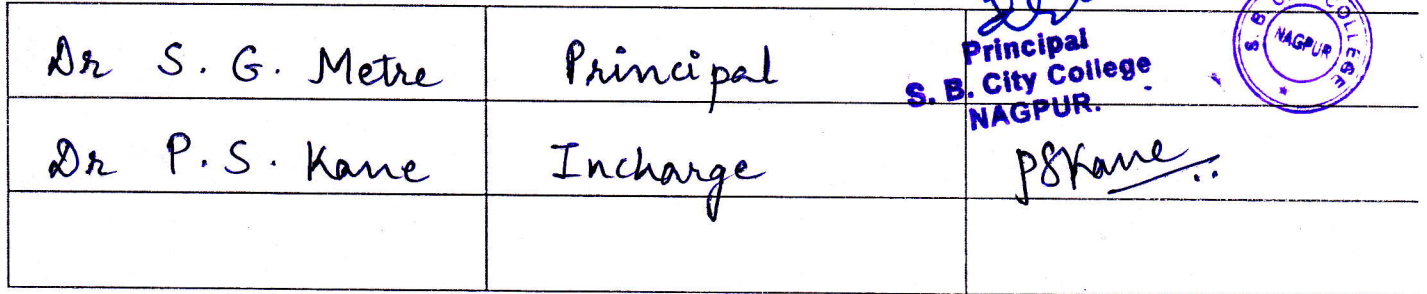 Dr S. G. Metre Principal
Principal
S. B. City College
NAGPUR.
S. B. C COLLEGE
NAGPUR
Dr P. S. Kane Incharge PSKane